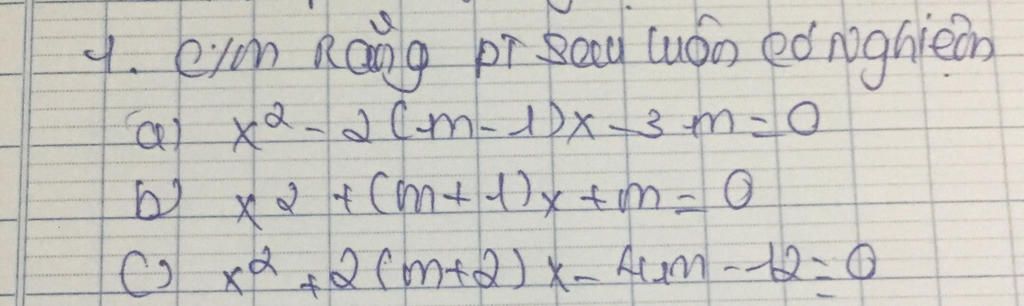 1. C/m Rằng pT Sau luôn có Nghiệm
a) x² - 2(m-1)x - 3m = 0
b) x² + (m+1)x + m = 0
c) x² + 2(m+2)x - 4m - 12 = 0